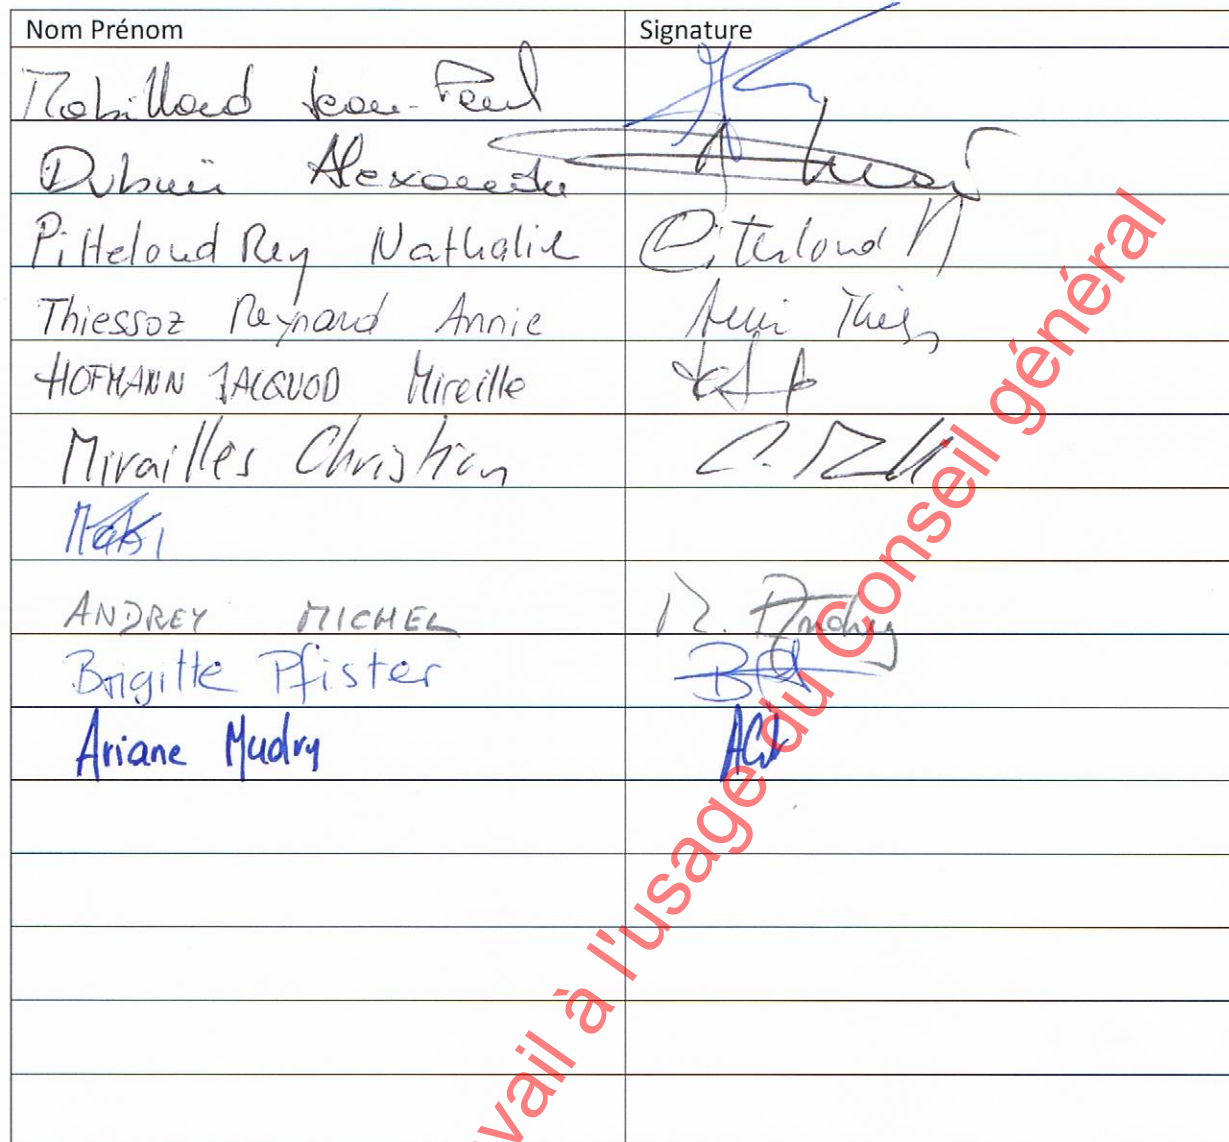 Nom Prénom Signature
Robillard Jean-Paul
Dubuis Alexandre
Pitteloud Rey Nathalie Pitteloud N
Thiessoz Reynard Annie Annie Thiess
HOFMANN JACQUOD Mireille
Mirailles Christian C.
ANDREY MICHEL M. Andrey
Brigitte Pfister
Ariane Mudry
vail à l'usage du Conseil général